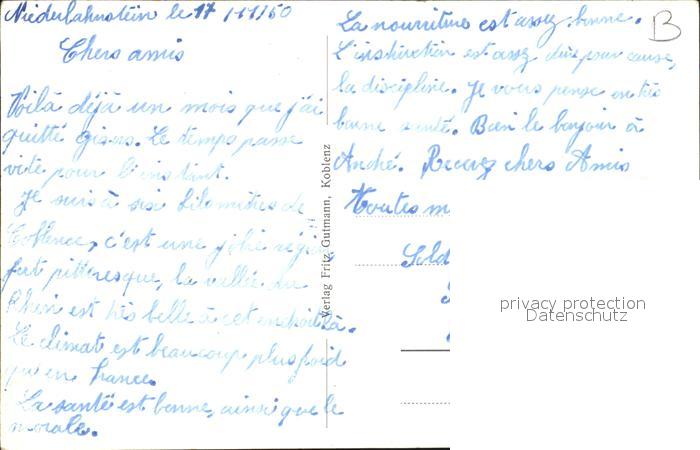 Niederlahnstein le 17 /11/50
Chers amis
Voilà déjà un mois que j'ai
quitté gisors. Le temps passe
vite pour l'instant.
Je suis à six kilomètres de
Coblence, c'est une jolie région
fort pittoresque, la vallée du
Rhin est très belle à cet endroit là.
Le climat est beaucoup plus froid
qu'en France.
La santé est bonne, ainsi que le
morale.
Verlag Fritz Gutmann, Koblenz
La nourriture est assez bonne.
L'instruction est assez dure pour cause,
la discipline. Je vous pense en très
bonne santé. Bien le bonjour à
André. Recevez chers Amis
Toutes m
Sold
B
privacy protection
Datenschutz